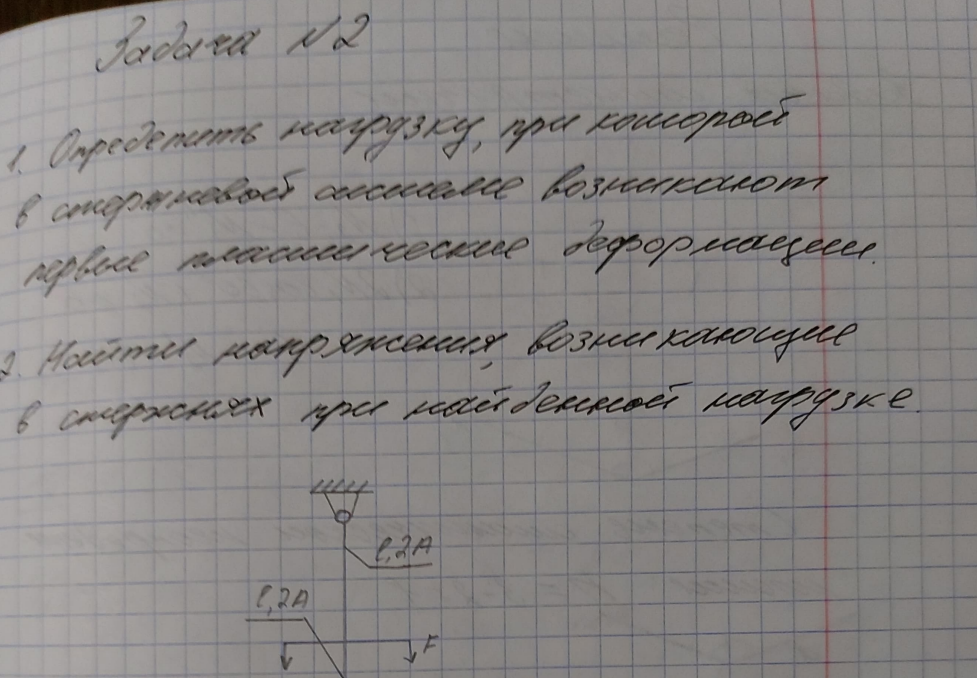 Задача №2
1. Определить нагрузку, при которой
в стержневой системе возникают
первые пластические деформации.
2. Найти напряжения, возникающие
в стержнях при найденной нагрузке.
l, 2A
l, 2A
F